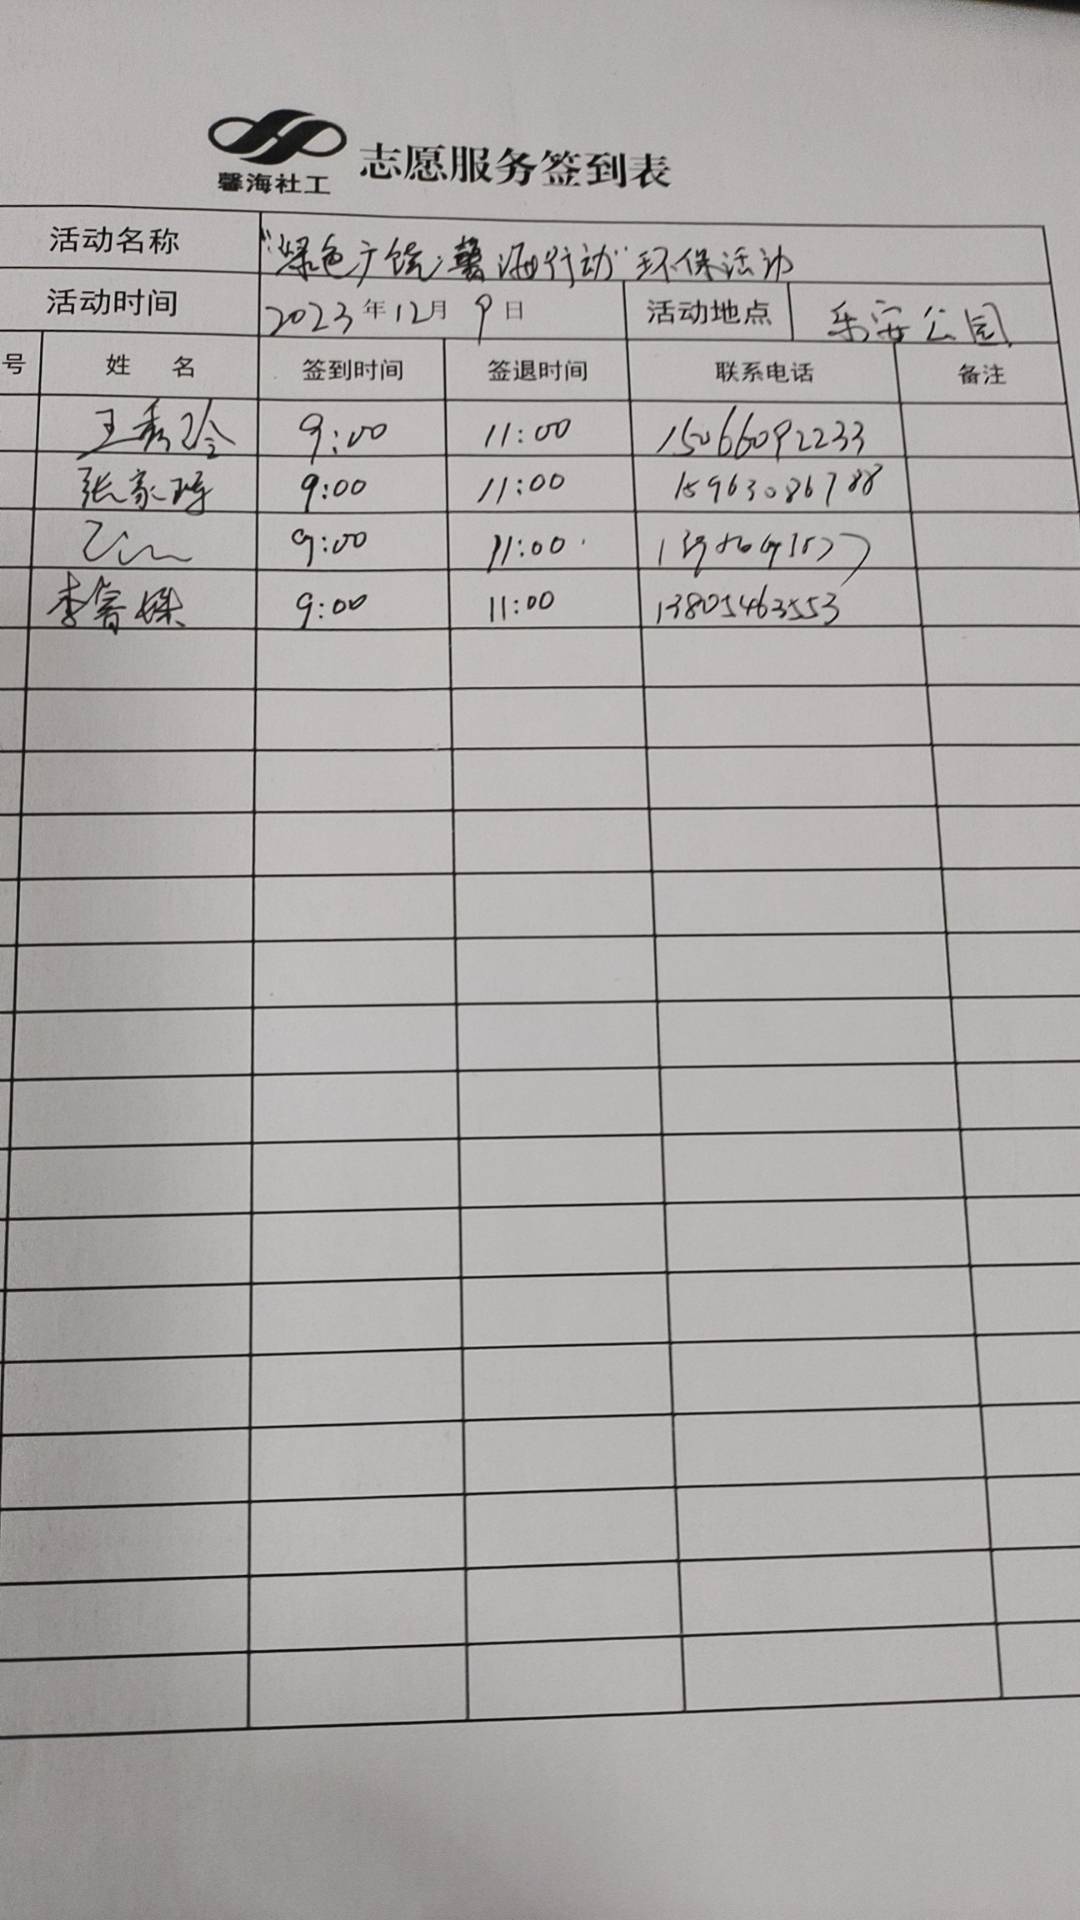 馨海社工 志愿服务签到表
活动名称 "绿色广饶·馨海行动"环保活动
活动时间 2023年12月9日 活动地点 乐安公园
号 姓 名 签到时间 签退时间 联系电话 备注
王秀玲 9:00 11:00 15066092233
张家 9:00 11:00 15963086788
9:00 11:00
李睿 9:00 11:00 13805463553